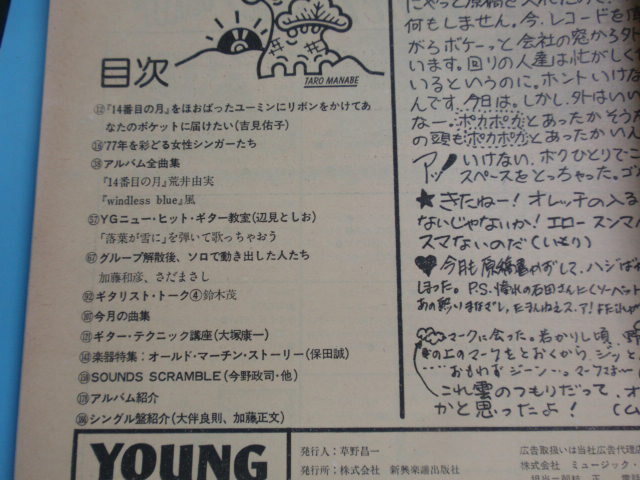 目次
TARO MANABE
⑫『14番目の月』をほおばったユーミンにリボンをかけてあ
なたのポケットに届けたい(吉見佑子)
⑯'77年を彩どる女性シンガーたち
㊳アルバム全曲集
『14番目の月』荒井由実
『windless blue』風
57YGニュー・ヒット・ギター教室(辺見としお)
「落葉が雪に」を弾いて歌っちゃおう
67グループ解散後、ソロで動き出した人たち
加藤和彦、さだまさし
92ギタリスト・トーク④鈴木茂
今月の曲集
ギター・テクニック講座(大塚康一)
楽器特集:オールド・マーチン・ストーリー(保田誠)
SOUNDS SCRAMBLE(今野政司・他)
アルバム紹介
シングル盤紹介(大伴良則、加藤正文)
YOUNG
発行人:草野昌一
発行所:株式会社 新興楽譜出版社
何もしません。今、レコードを
がらボケーッと会社の窓から外
います。回りの人達は忙がしく
いるというのに。ホントいけな
んです。今日は。しかし、外はいい
なー。ポカポカとあったかそうだ
の頭もポカポカとあったかい人
アッ!いけない、ボクひとりでこ
スペースをとっちゃった。ゴ
★きたねー!オレッチの入る
ないじゃないか!エロー スンマ
スマないのだ(いさり)
マークに会った。若かりし頃、野
の上のマークをとおくから、ジッと
おもわずジーン
これ雲のつもりだって、オ
かと思ったよ!
広告取扱いは当社広告代理店
株式会社 ミュージック・